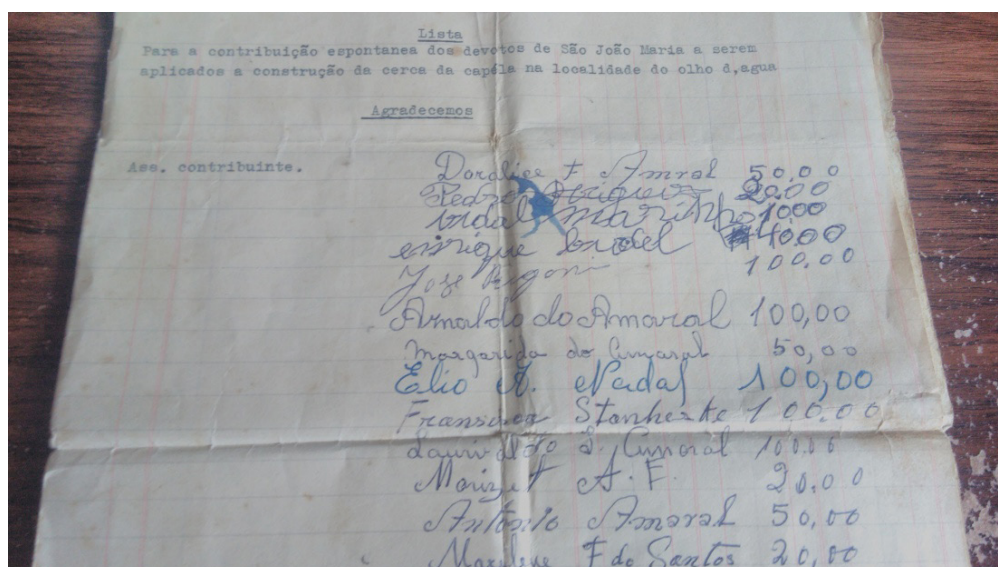 Lista
Para a contribuição espontanea dos devotos de São João Maria a serem
aplicados a construção da cerca da capéla na localidade do olho d,agua
Agradecemos
Ass. contribuinte.
Doralice F Amral 50.00
Pedro 20.00
vidal marinho 1000
enrique 40.00
Jose Rigoni 100.00
Arnaldo do Amaral 100,00
Margarida do Amaral 50,00
Elio A. Nadal 100,00
Stanheske 100.00
d. Amaral 100.00
A. F. 20.00
Antonio Amaral 50,00
F do Santos 20,00